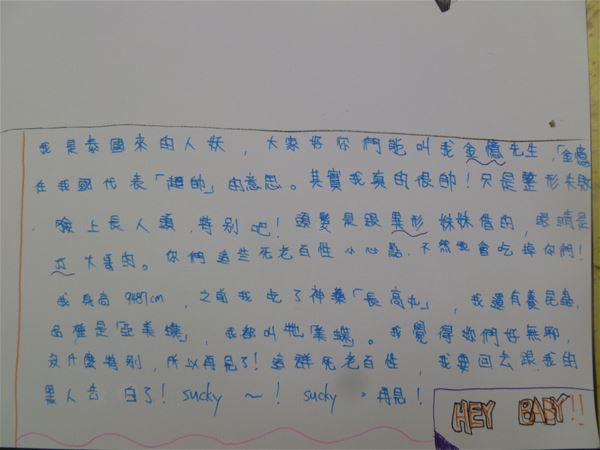 我是泰國來的人妖，大家好你們能叫我金億先生，「金億
在我國代表「超帥」的意思。其實我真的很帥！只是整形失敗
臉上長人頭，特別吧！頭髮是跟異形妹妹借的，眼睛是
大哥的。你們這些死老百性小心點，不然我會吃掉你們！
我身高9487cm，之前我吃了神藥「長高丸」，我還有養昆蟲，
品種是「亞美蝶」，我都叫牠「美蝶」。我覺得妳們好無聊，
沒什麼特別，所以再見了！這群死老百性，我要回去跟我的
黑人告白了！sucky ～！sucky。再見！
HEY BABY!!